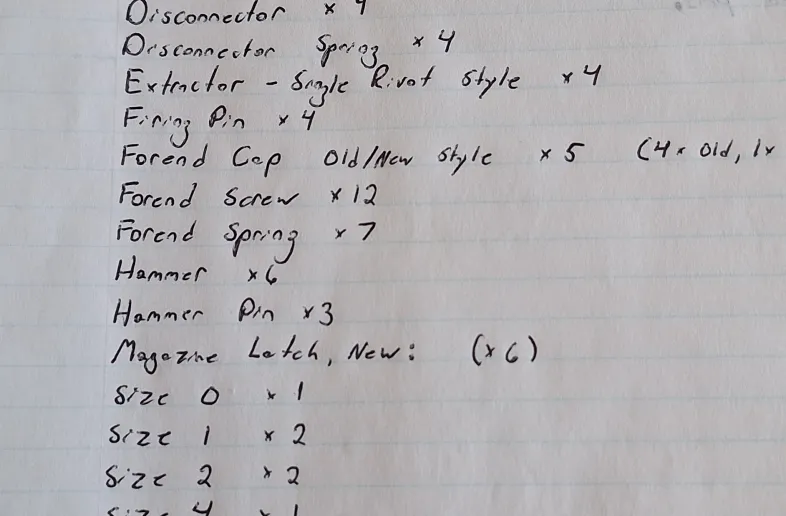 Disconnector x 4
Disconnector Spring x 4
Extractor - Single Rivot Style x 4
Firing Pin x 4
Forend Cap Old/New Style x 5 (4x Old, 1x
Forend Screw x 12
Forend Spring x 7
Hammer x 6
Hammer Pin x 3
Magazine Latch, New: (x 6)
Size 0 x 1
Size 1 x 2
Size 2 x 2
Size 4 x 1